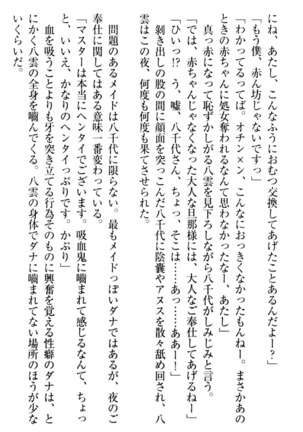 にね、あたし、こんなふうにおむつ交換してあげたことあるんだよー？」
「もう僕、赤ん坊じゃないですっ」
「わかってるってば。オチン×ン、こんなにおっきくなかったもんねー。まさかあの
ときの赤ちゃんに処女奪われるなんて思わなかったなー、あたし」
　真っ赤になって恥ずかしがる八雲を見下ろしながら八千代がしみじみと言う。
「では、赤ちゃんじゃなくなった大人な旦那様には、大人なご奉仕してあげるねー」
「ひいっ!?　う、嘘、八千代さん、ちょっ、そこは……あっ……ああー！」
　剝き出しの股の間に顔面を突っこんだ八千代に陰嚢やアヌスを散々舐め回され、八
雲はこの夜、何度も何度も果てさせられた。
　問題のあるメイドは八千代に限らない。最もメイドっぽいダナではあるが、夜のご
奉仕に関してはある意味一番変わっている。
「マスターは本当にヘンタイでございます。吸血鬼に嚙まれて感じるなんて、ちょっ
と、いいえ、かなりのヘンタイっぷりです。かぷり」
　血を吸うことよりも牙を突き立てる行為そのものに興奮を覚える性癖のダナは、と
にかく八雲の全身を嚙んでくる。八雲の身体でダナに嚙まれてない場所のほうが少な
いくらいだ。